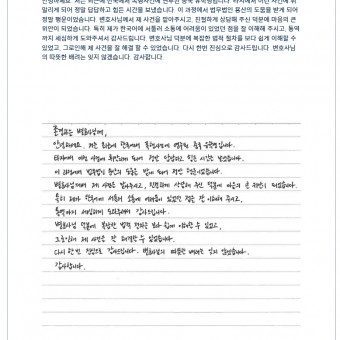 말리게 되어 정말 답답하고 힘든 시간을 보냈습니다. 이 과정에서 법무법인 용신의 도움을 받게 되어
정말 행운이었습니다. 변호사님께서 제 사건을 맡아주시고, 친절하게 상담해 주신 덕분에 마음의 큰
위안이 되었습니다. 특히 제가 한국어에 서툴러 소통에 어려움이 있었던 점을 잘 이해해 주시고, 통역
까지 세심하게 도와주셔서 감사드립니다. 변호사님 덕분에 복잡한 법적 절차를 보다 쉽게 이해할 수
있었고, 그로인해 제 사건을 잘 해결 할 수 있었습니다. 다시 한번 진심으로 감사드립니다. 변호사님
의 따뜻한 배려는 잊지 않겠습니다. 감사합니다.
변호사님께,
안녕하세요. 저는 최근에 한국에서
타지에서 이런 사건에 휘말리게 되어 정말 답답하고 힘든 시간을 보냈습니다.
이 과정에서 법무법인 용신의 도움을 받게 되어 정말 행운이었습니다.
변호사님께서 제 사건을 맡아주시고, 친절하게 상담해 주신 덕분에 마음의 큰 위안이 되었습니다.
특히 제가 한국어에 서툴러 소통에 어려움이 있었던 점을 잘 이해해 주시고,
통역까지 세심하게 도와주셔서 감사드립니다.
변호사님 덕분에 복잡한 법적 절차를 보다 쉽게 이해할 수 있었고,
그로인해 제 사건을 잘 해결할 수 있었습니다.
다시 한번 진심으로 감사드립니다. 변호사님의 따뜻한 배려는 잊지 않겠습니다.
감사합니다.